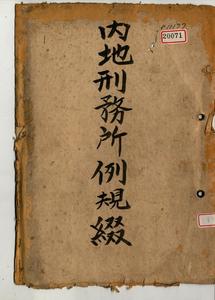 20071
内地刑務所例規綴